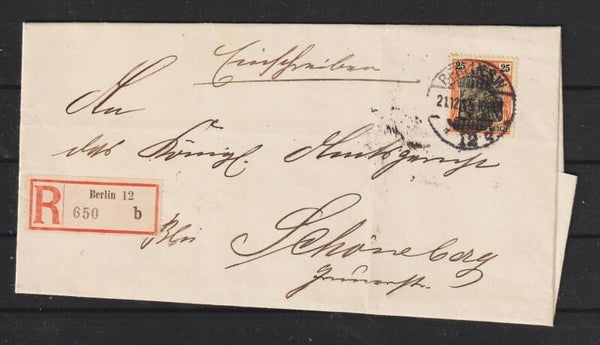 Einschreiben
25 25
An
BERLIN
21.12
das Königl. Amtsgericht
12
Berlin 12
R 650 b
Schöneberg
Grunerstr.